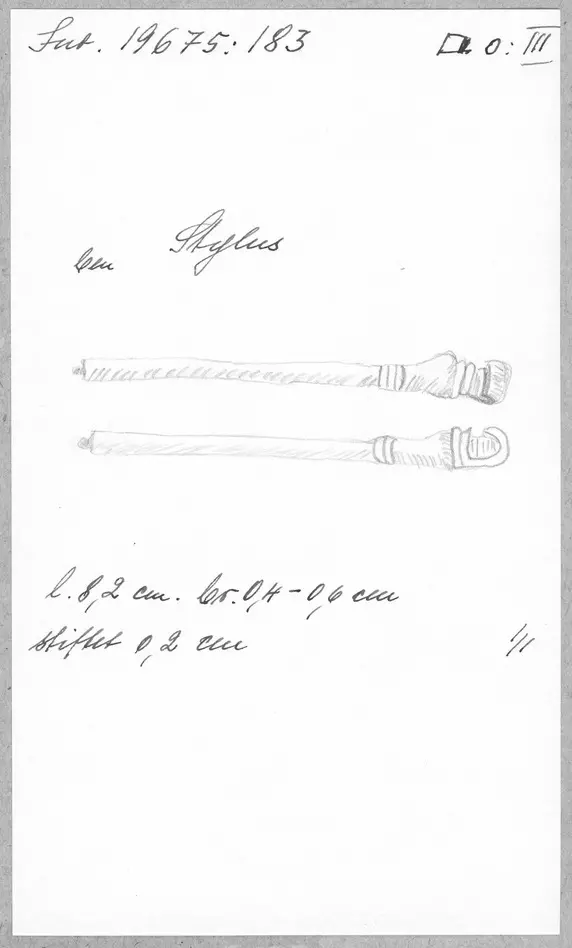 Inv. 19675:183
O:III
ben Stylus
l. 8,2 cm. br. 0,4 – 0,6 cm
stiftet 0,2 cm 1/1